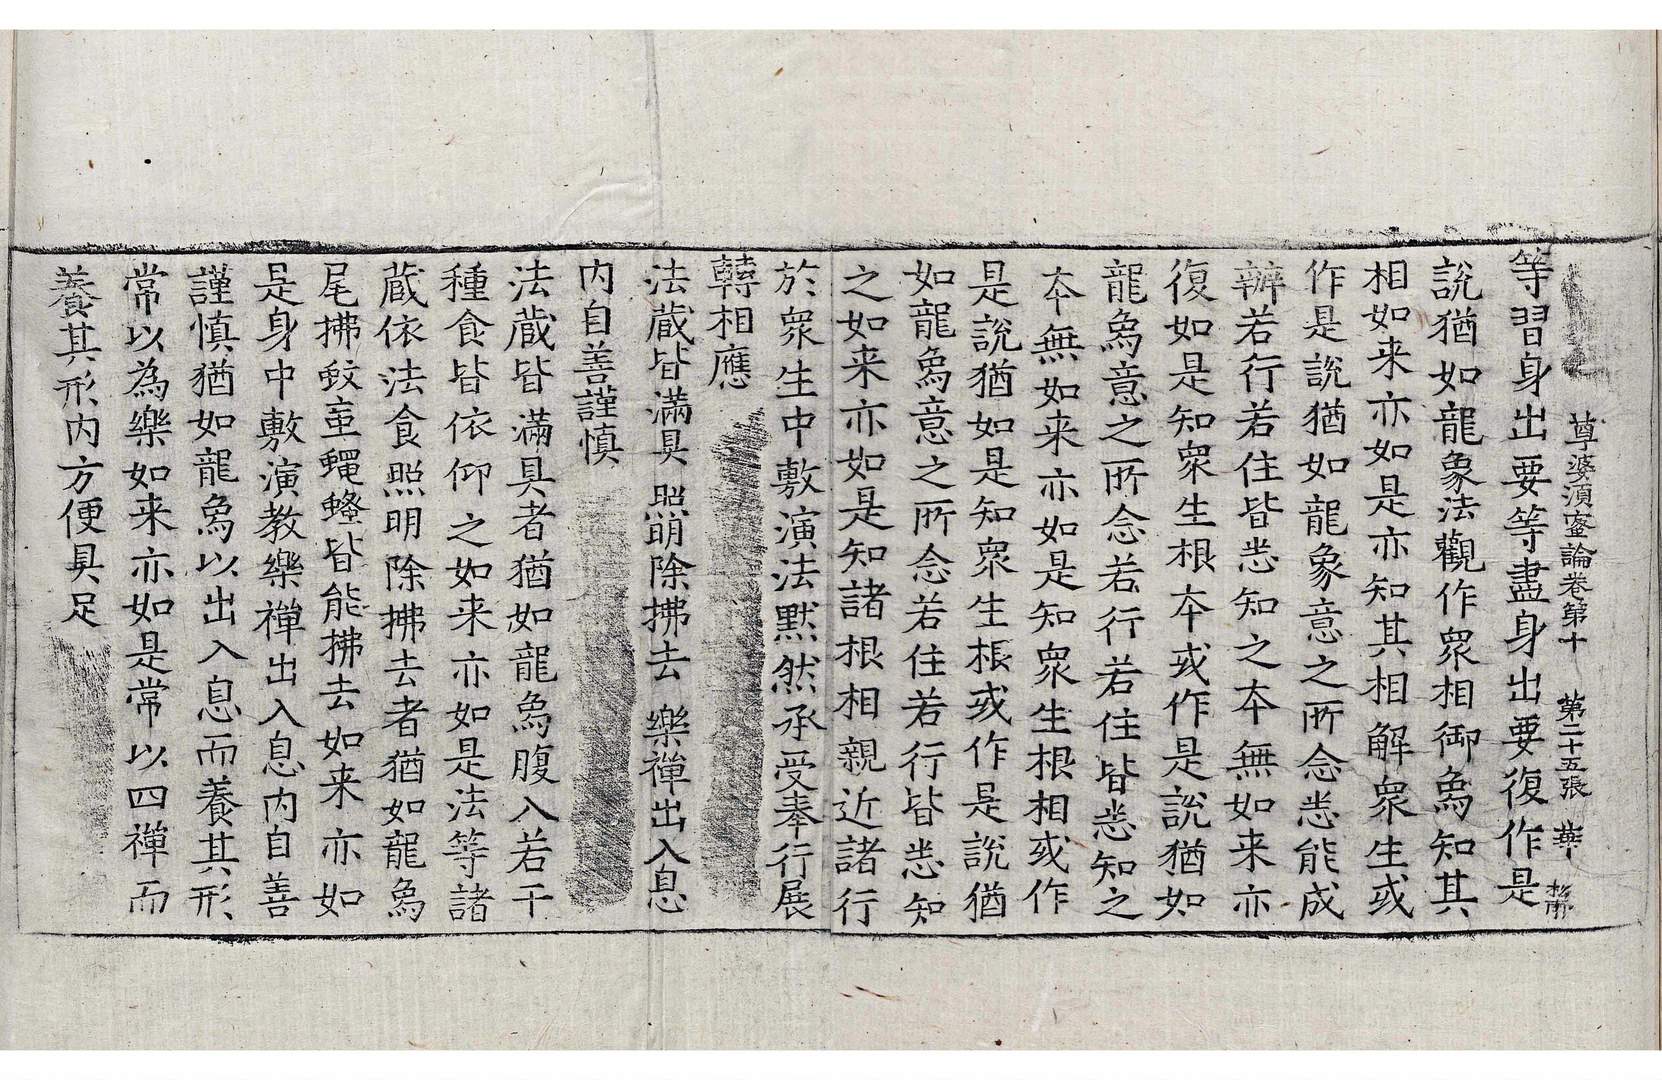 尊婆須蜜論卷第十　第二十五張　華
等習身出要等盡身出要復作是
說猶如龍象法觀作衆相御爲知其
相如来亦如是亦知其相解衆生或
作是說猶如龍象意之所念悉能成
辦若行若住皆悉知之夲無如来亦
復如是知衆生根夲或作是說猶如
龍爲意之所念若行若住皆悉知之
夲無如来亦如是知衆生根相或作
是說猶如是知衆生根或作是說猶
如龍爲意之所念若住若行皆悉知
之如来亦如是知諸根相親近諸行
於衆生中敷演法默然承受奉行展
轉相應
法蔵皆滿具　照明除拂去　樂禪出入息
内自善謹慎
法蔵皆滿具者猶如龍爲腹入若干
種食皆依仰之如来亦如是法等諸
蔵依法食照明除拂去者猶如龍爲
尾拂蚊䖝蠅蠭皆能拂去如来亦如
是身中敷演教樂禪出入息内自善
謹慎猶如龍爲以出入息而養其形
常以為樂如来亦如是常以四禪而
養其形内方便具足